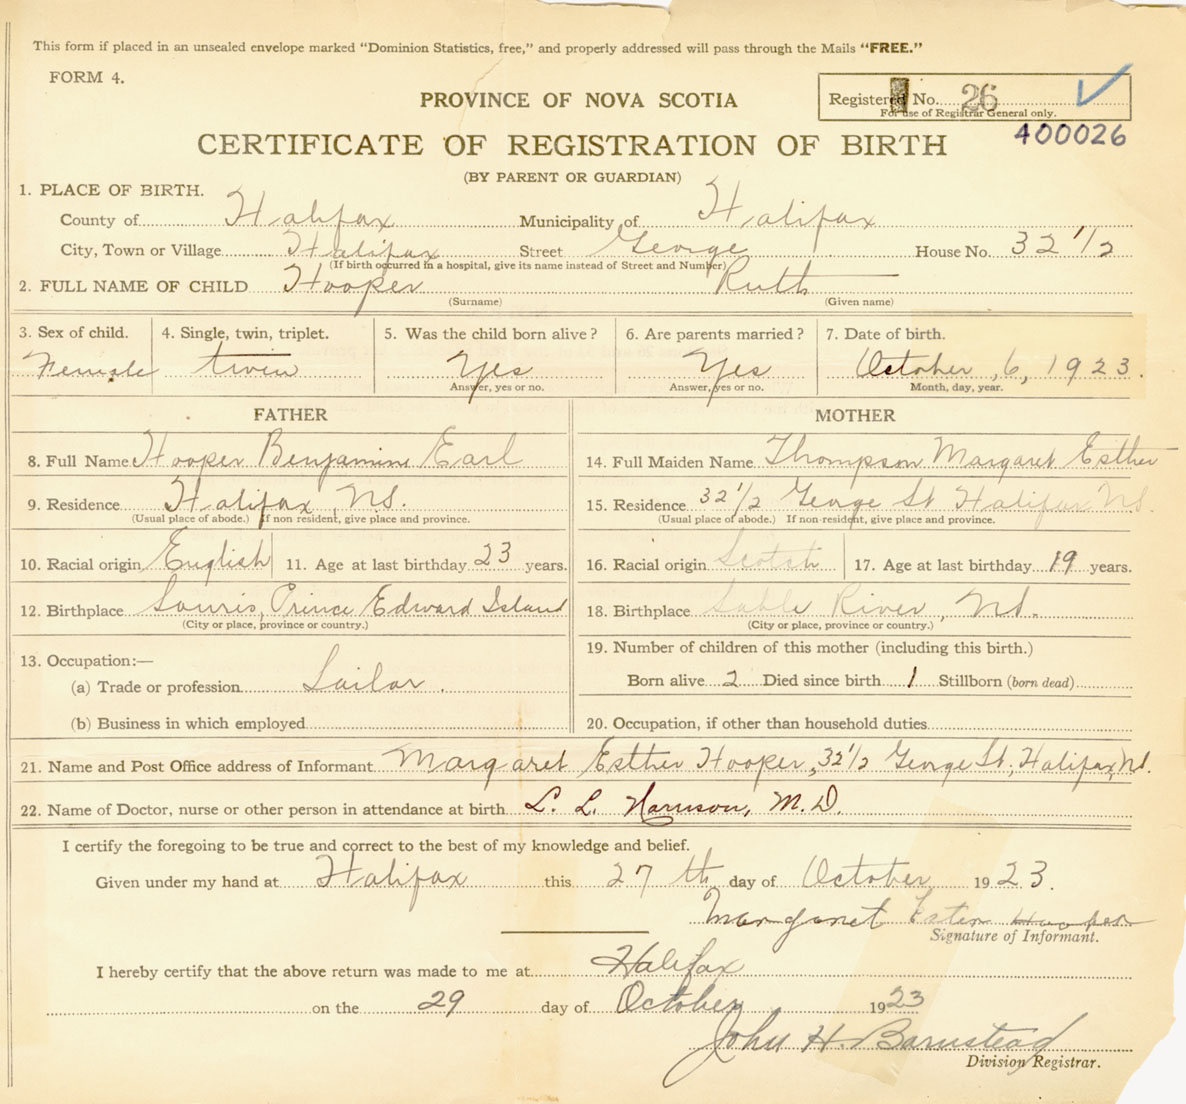 This form if placed in an unsealed envelope marked "Dominion Statistics, free," and properly addressed will pass through the Mails "FREE."
FORM 4.
PROVINCE OF NOVA SCOTIA
Registered No. 26
For use of Registrar General only.
400026
CERTIFICATE OF REGISTRATION OF BIRTH
(BY PARENT OR GUARDIAN)
1. PLACE OF BIRTH.
County of Halifax Municipality of Halifax
City, Town or Village Halifax Street George House No. 32 1/2
(If birth occurred in a hospital, give its name instead of Street and Number)
2. FULL NAME OF CHILD Hooper Ruth
(Surname) (Given name)
3. Sex of child. 4. Single, twin, triplet. 5. Was the child born alive? 6. Are parents married? 7. Date of birth.
Female twin Yes Yes October, 6, 1923.
Answer, yes or no. Answer, yes or no. Month, day, year.
FATHER MOTHER
8. Full Name Hooper Benjamin Earl 14. Full Maiden Name Thompson Margaret Esther
9. Residence Halifax, N.S. 15. Residence 32 1/2 George St Halifax N.S.
(Usual place of abode.) If non resident, give place and province. (Usual place of abode.) If non-resident, give place and province.
10. Racial origin English 11. Age at last birthday 23 years. 16. Racial origin Scotch 17. Age at last birthday 19 years.
12. Birthplace Souris, Prince Edward Island 18. Birthplace Sable River, N.S.
(City or place, province or country.) (City or place, province or country.)
13. Occupation:— 19. Number of children of this mother (including this birth.)
(a) Trade or profession Sailor. Born alive 2 Died since birth 1 Stillborn (born dead)
(b) Business in which employed 20. Occupation, if other than household duties
21. Name and Post Office address of Informant Margaret Esther Hooper, 32 1/2 George St., Halifax, N.S.
22. Name of Doctor, nurse or other person in attendance at birth L. L. Harrison, M.D.
I certify the foregoing to be true and correct to the best of my knowledge and belief.
Given under my hand at Halifax this 27 th day of October 1923.
Margaret Ester Hooper
Signature of Informant.
I hereby certify that the above return was made to me at Halifax
on the 29 day of October 1923
John H. Barnstead
Division Registrar.